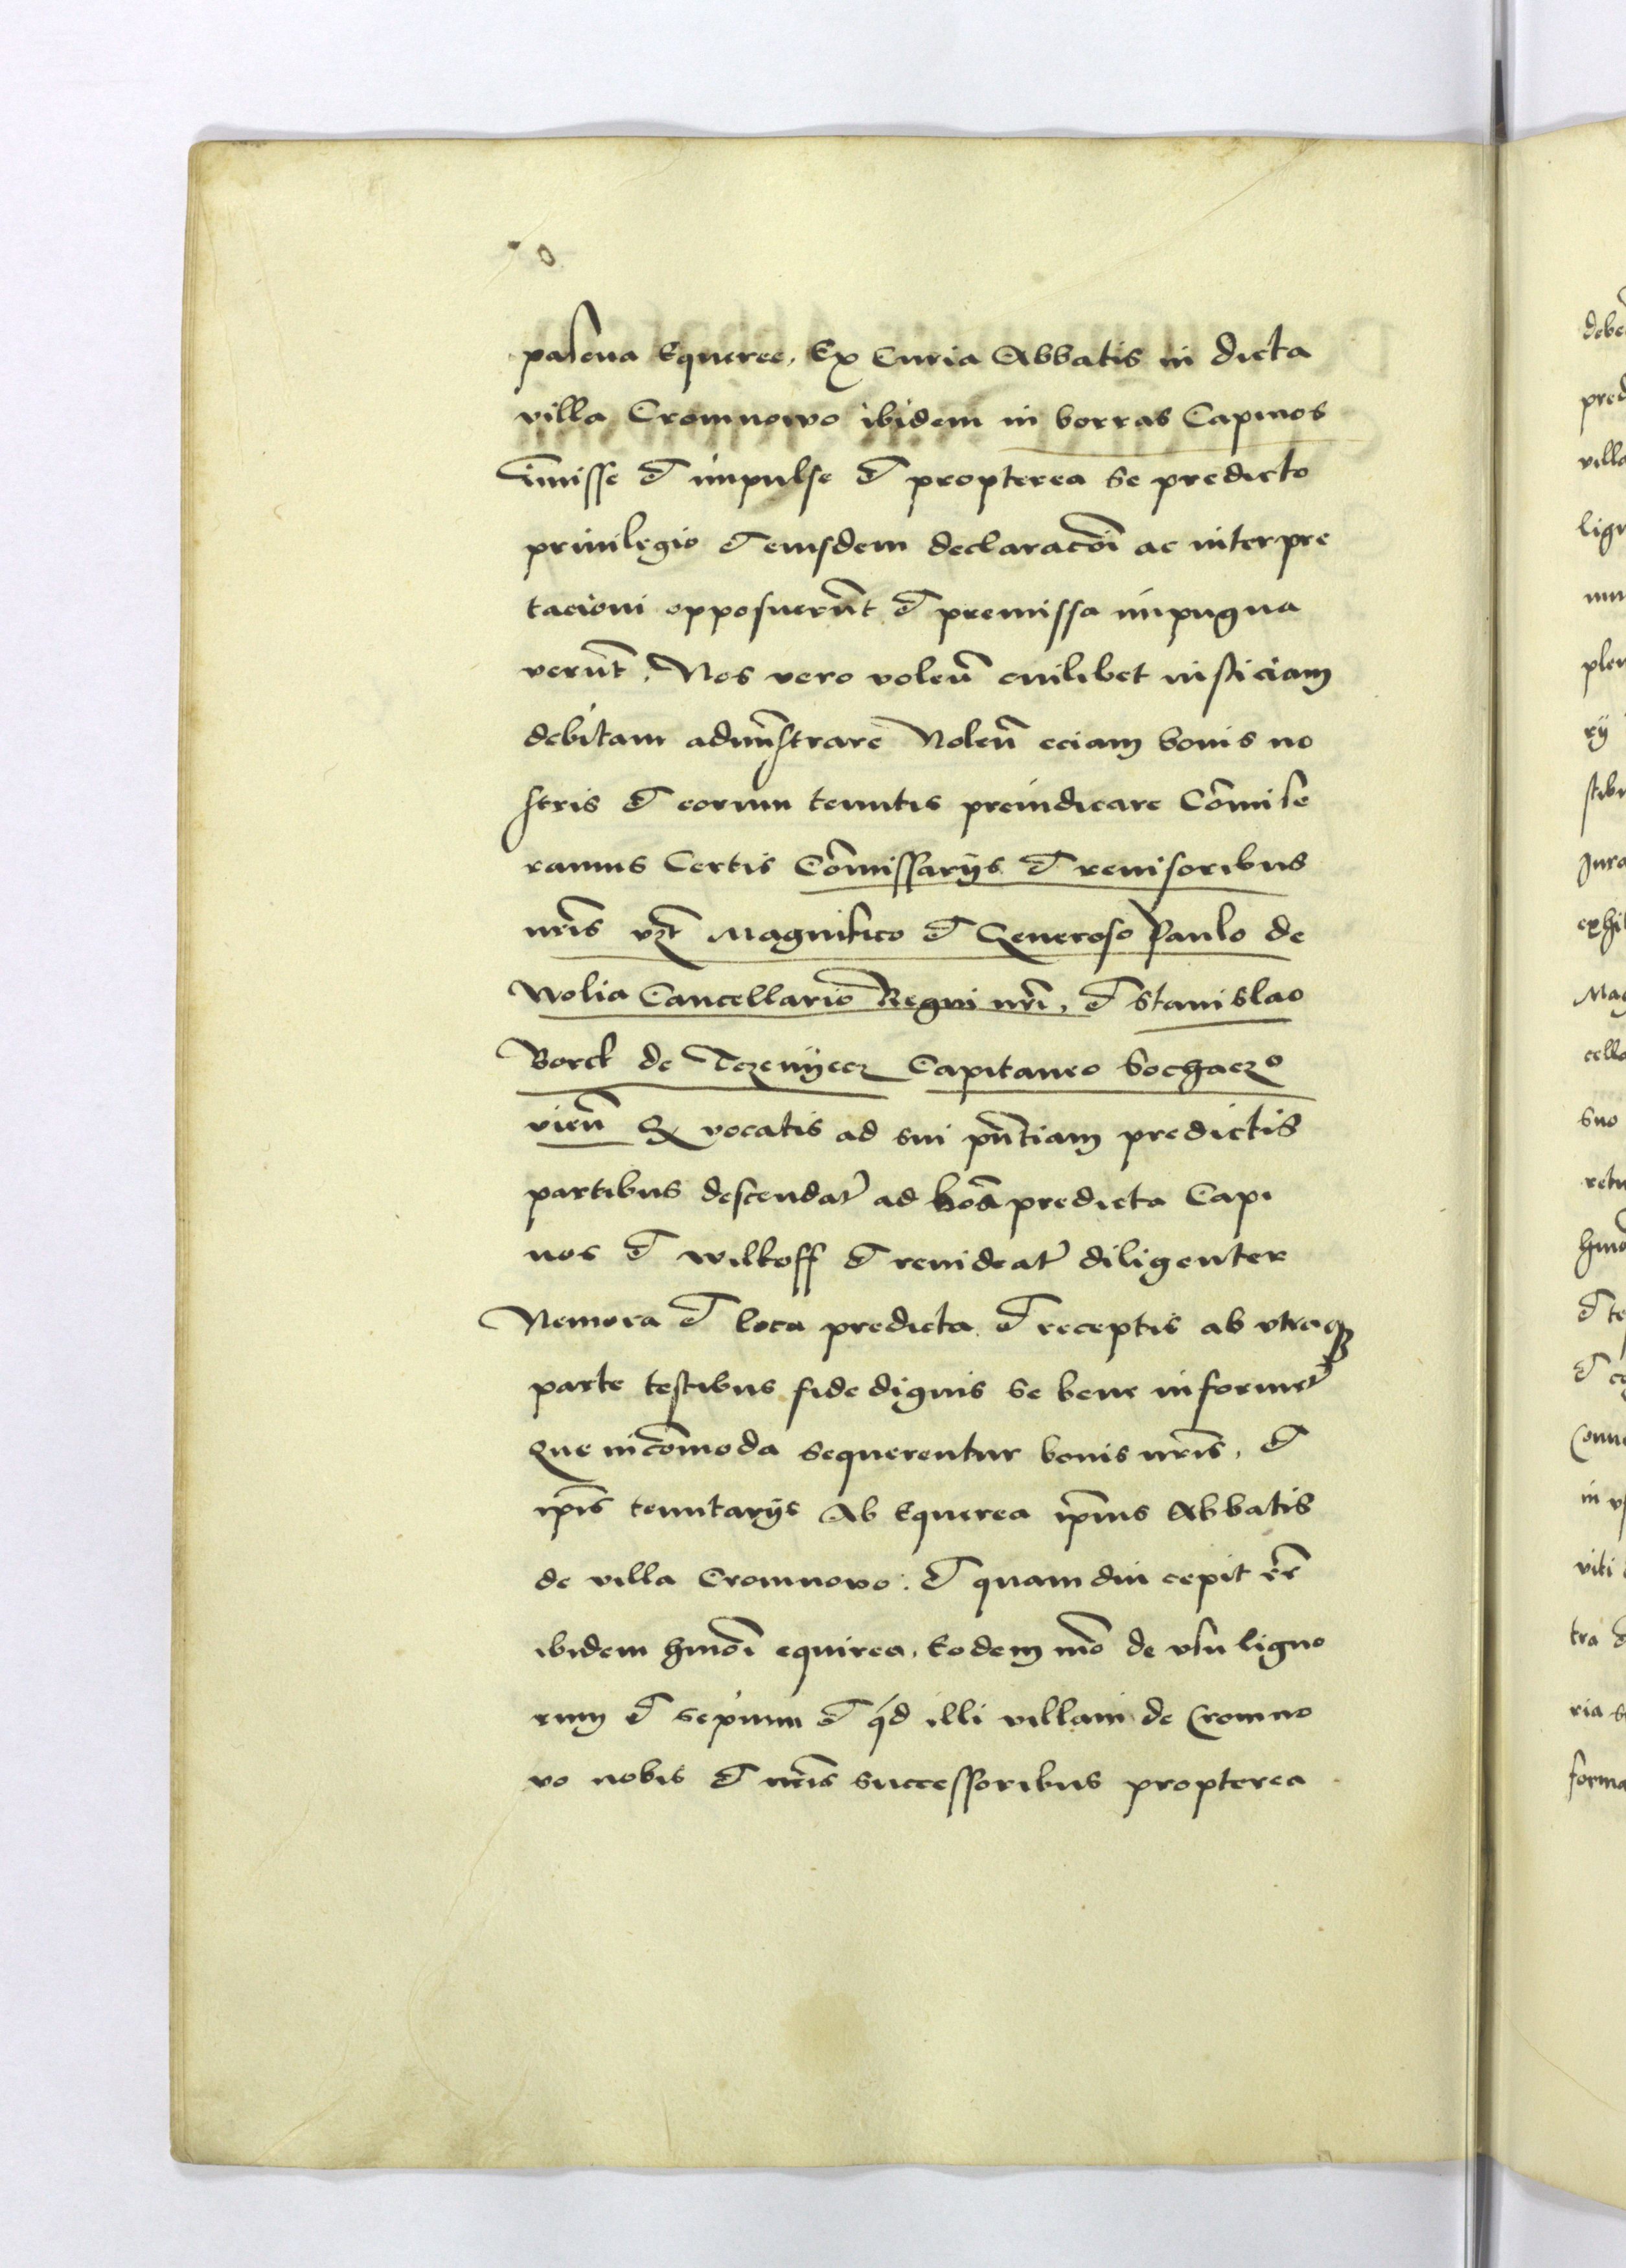 pascua Equeree, Ex Curia Abbatis in dicta
villa Cromnowo ibidem in borras Capinos
im̄isse et impulse et propterea se predicto
priuilegio et eiusdem declaracōi ac interpre
tacioni opposuerūt et premissa impugna
verūt, Nos vero volen̄ cuilibet iusticiam
debitam admīstrare Nolen̄ eciam bonis no
stris et eorum tenutis preiudicare Cōmise
ramus Certis Cōmissarijs et reuisoribus
nr̄is vz̄t Magnifico et Generoso Paulo de
Wolia Cancellario Regni nr̄i, et Stanislao
Borek de Trzemyecz Capitaneo Sochaczo
vien̄ Qr vocatis ad sui pn̄tiam predictis
partibus descendat͛ ad bōa predicta Capi
nos et Wilkoff et reuideat͛ diligenter
Nemora et loca predicta et receptis ab vtraqꝫ
parte testibus fide dignis se bene informet͛
Que incōmoda sequerentur bonis nr̄is, et
ip̄is tenutarijs Ab Equerea ip̄ius Abbatis
de villa Cromnowo: et quam diu cepit ēē
ibidem hmōi equirea, Eodem mō de vsu ligno
rum et sepium et qd illi villani de Cromno
vo nobis et nr̄is successoribus propterea